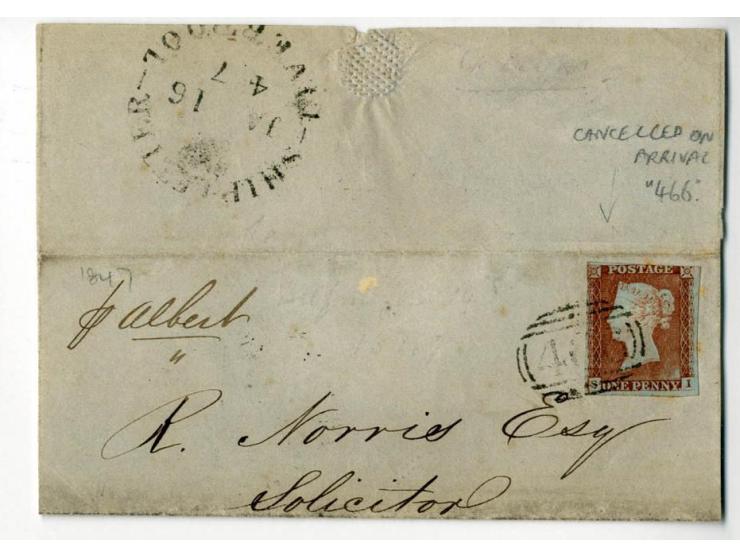 LIVERPOOL
SHIP LETTER
JA 16
47
CANCELLED ON
ARRIVAL
"466".
1847
p albert
"
POSTAGE
S ONE PENNY I
R. Norris Esq
Solicitor